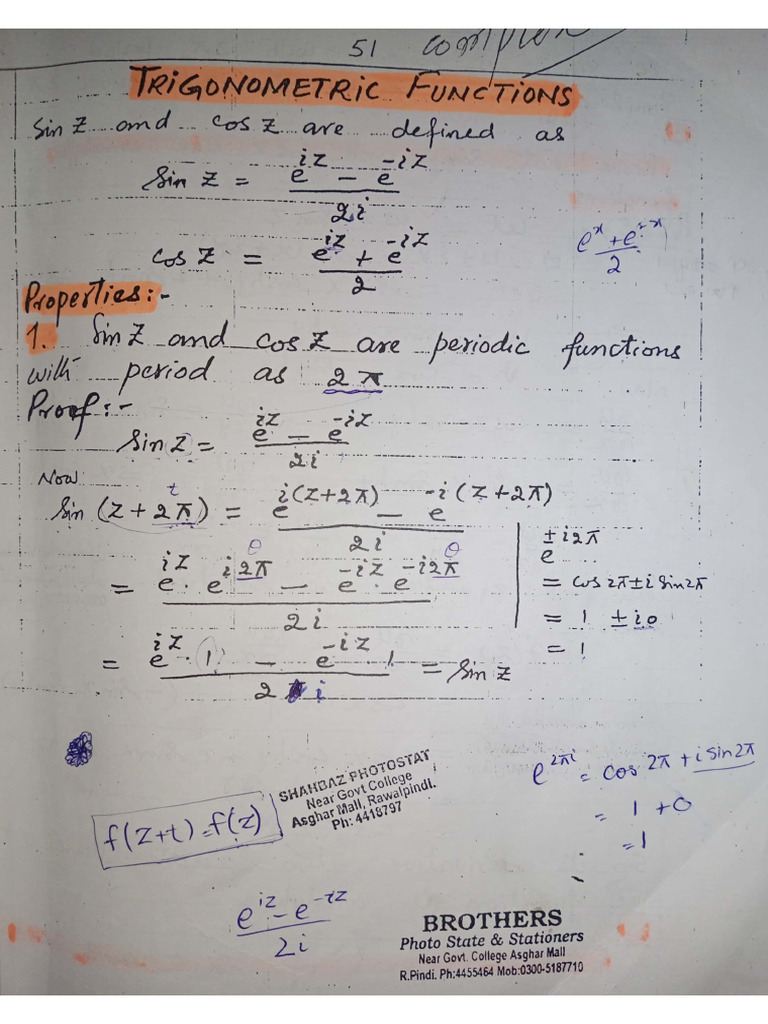 51 complex
TRIGONOMETRIC FUNCTIONS
Sin Z and cos Z are defined as
Sin Z = (e^{iZ} - e^{-iZ}) / 2i
cos Z = (e^{iZ} + e^{-iZ}) / 2
(e^x + e^{-x}) / 2
Properties:-
1. Sin Z and cos Z are periodic functions
with period as 2π
Proof:-
Sin Z = (e^{iZ} - e^{-iZ}) / 2i
Now
t
Sin (Z + 2π) = (e^{i(Z+2π)} - e^{-i(Z+2π)}) / 2i
θ θ
= (e^{iZ} . e^{i2π} - e^{-iZ} . e^{-i2π}) / 2i
e^{±i2π}
= cos 2π ± i Sin 2π
= 1 ± i0
= 1
= (e^{iZ} . 1 - e^{-iZ} . 1) / 2i = Sin Z
e^{2πi} = cos 2π + i sin 2π
= 1 + 0
= 1
f(z+t) = f(z)
SHAHBAZ PHOTOSTAT
Near Govt College
Asghar Mall, Rawalpindi.
Ph: 4418797
(e^{iz} - e^{-iz}) / 2i
BROTHERS
Photo State & Stationers
Near Govt. College Asghar Mall
R.Pindi. Ph:4455464 Mob:0300-5187710